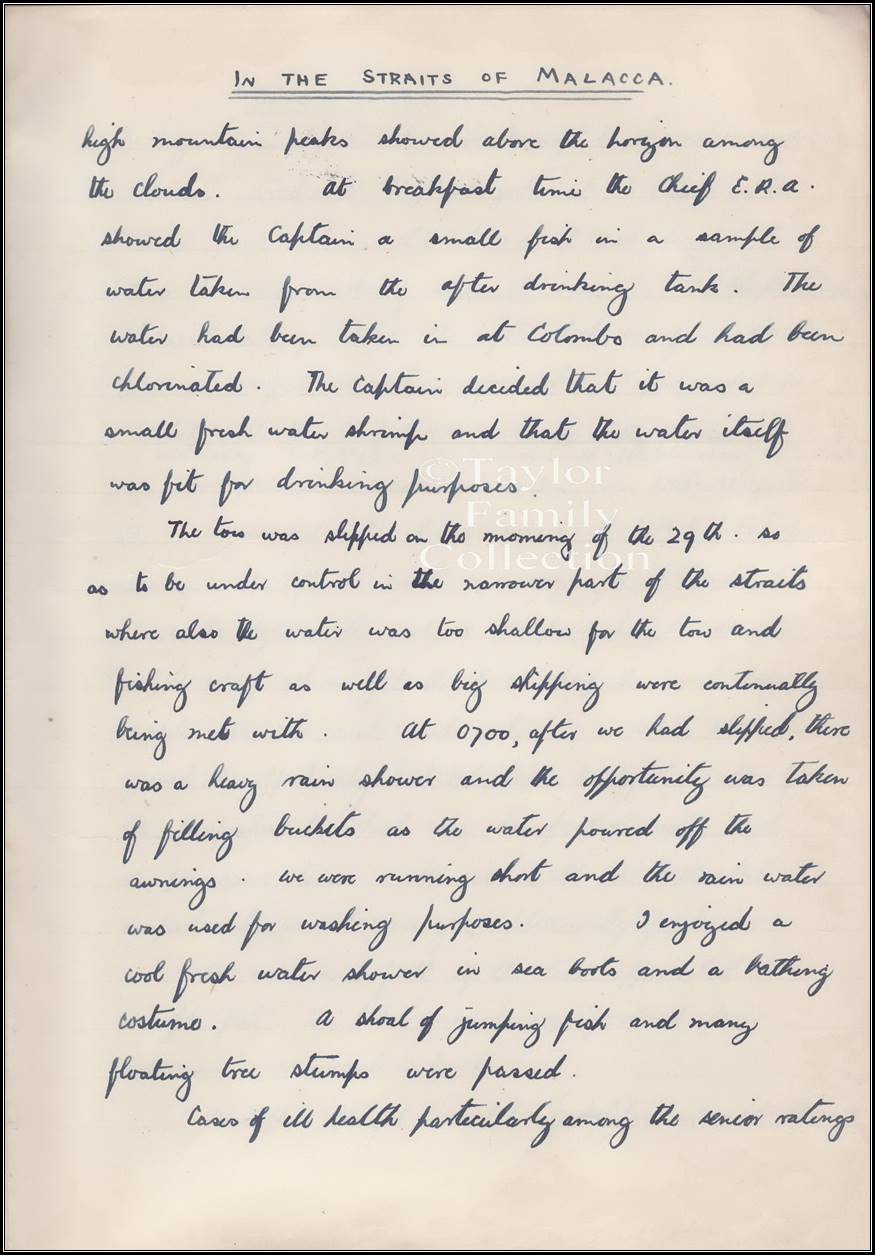 IN THE STRAITS OF MALACCA.
high mountain peaks showed above the horizon among
the clouds. At breakfast time the Chief E.R.A.
showed the Captain a small fish in a sample of
water taken from the after drinking tank. The
water had been taken in at Colombo and had been
chlorinated. The Captain decided that it was a
small fresh water shrimp and that the water itself
was fit for drinking purposes.
©Taylor
Family
Collection
The tow was slipped on the morning of the 29th. so
as to be under control in the narrower part of the straits
where also the water was too shallow for the tow and
fishing craft as well as big shipping were continually
being met with. At 0700, after we had slipped, there
was a heavy rain shower and the opportunity was taken
of filling buckets as the water poured off the
awnings. We were running short and the rain water
was used for washing purposes. I enjoyed a
cool fresh water shower in sea boots and a bathing
costume. A shoal of jumping fish and many
floating tree stumps were passed.
Cases of ill health particularly among the senior ratings